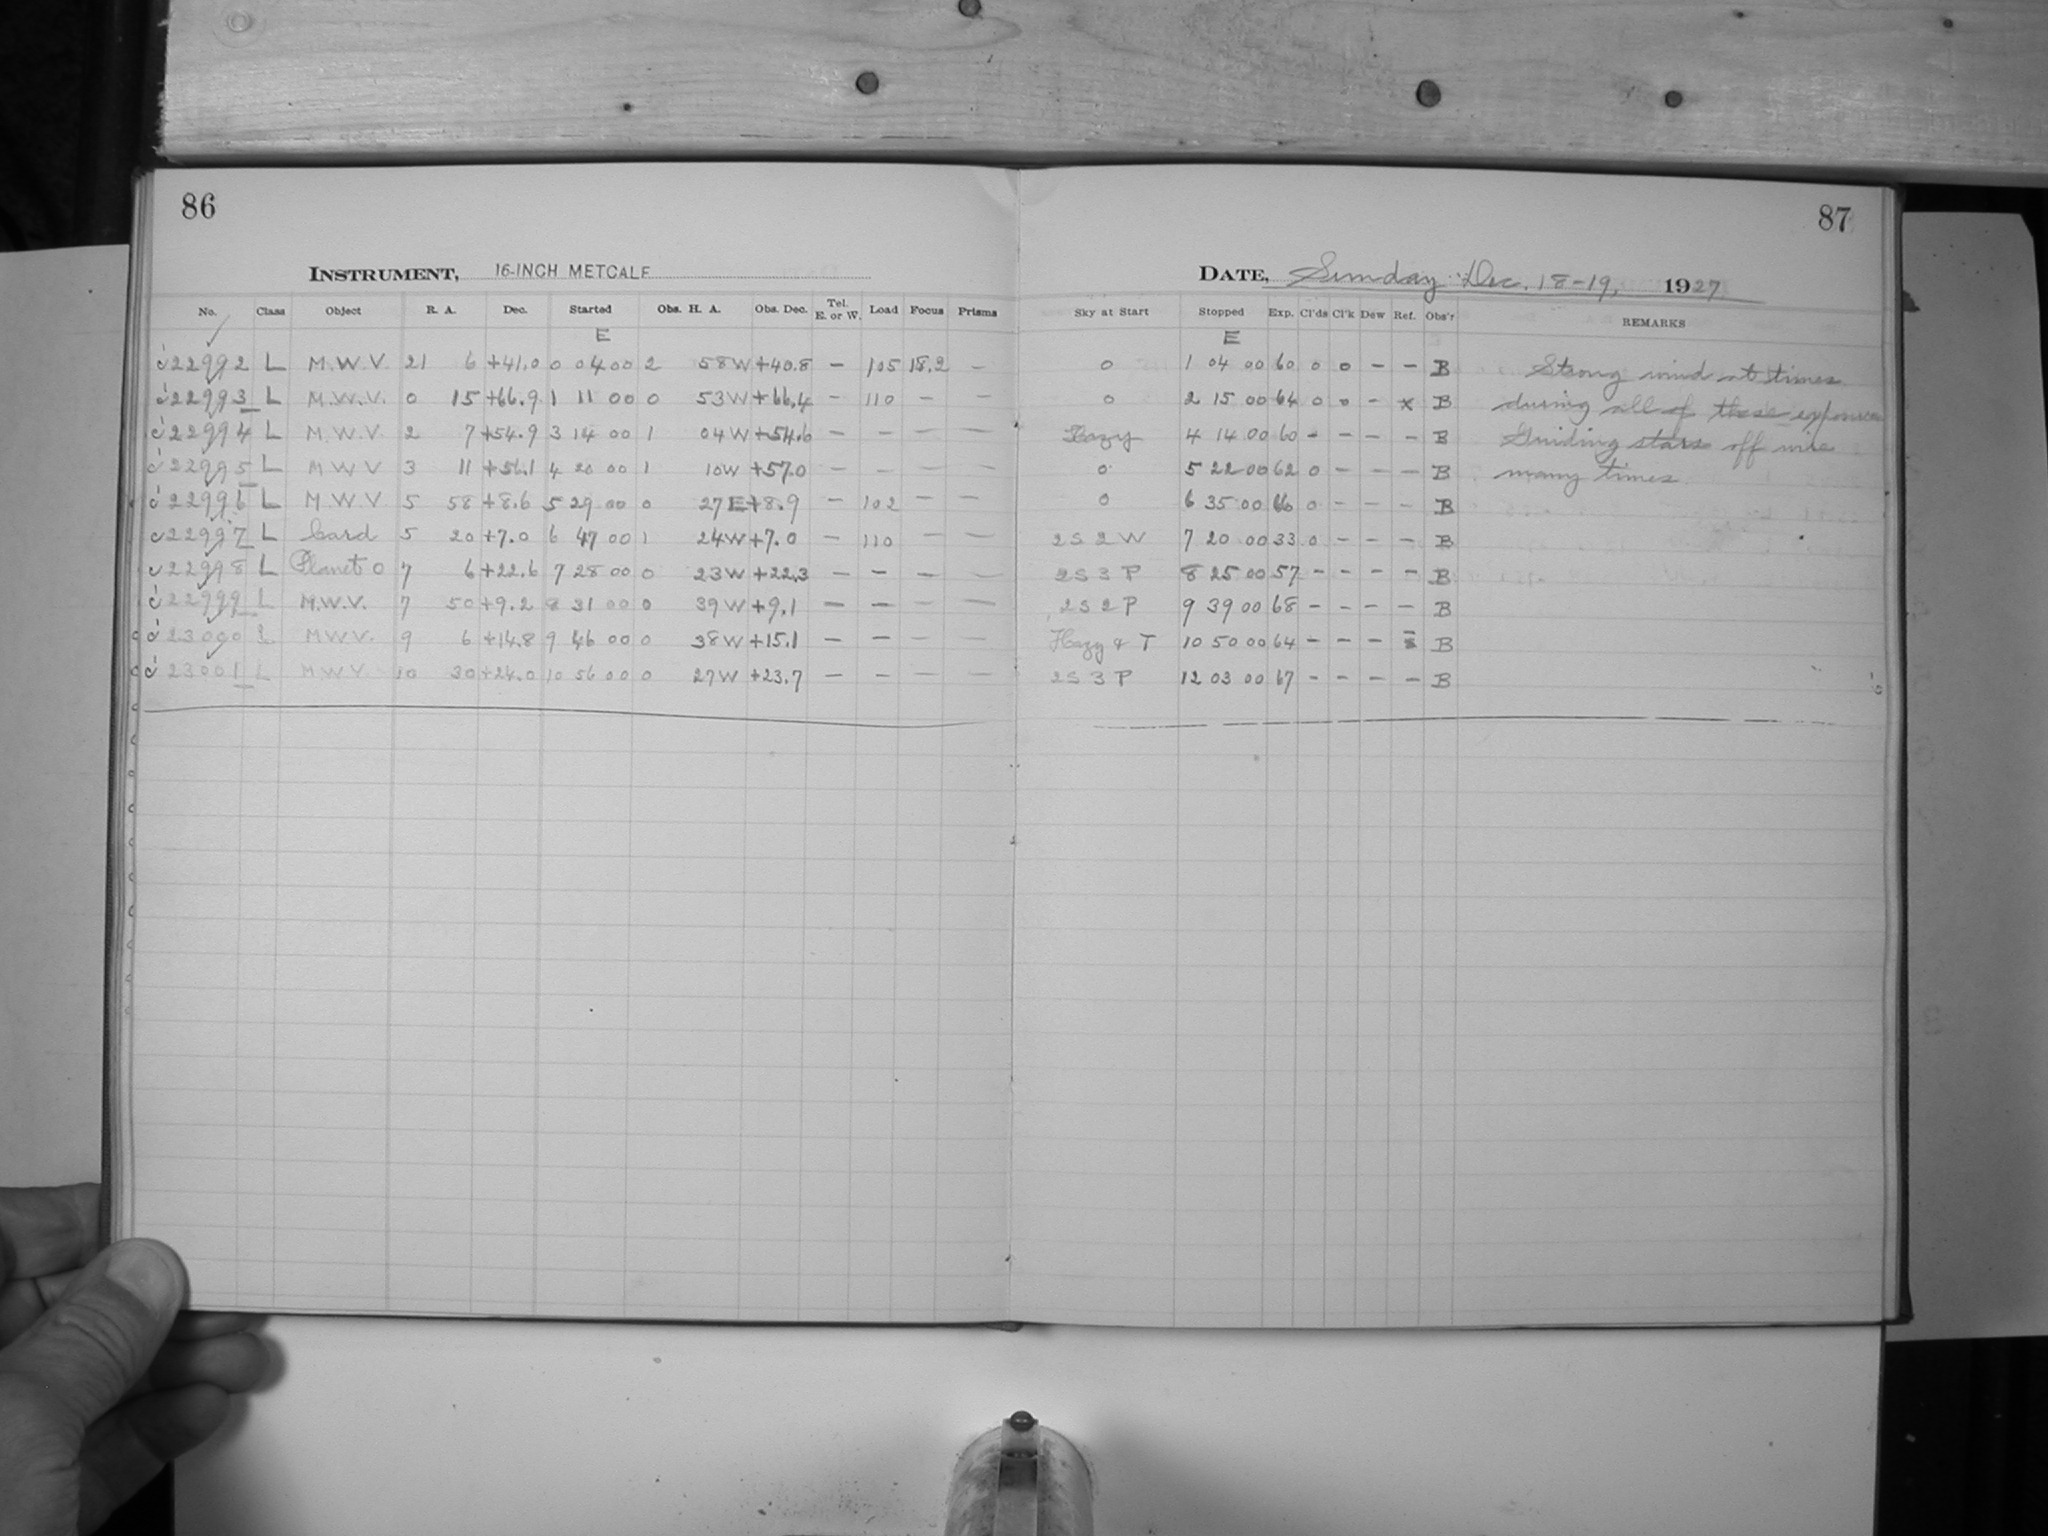 86
INSTRUMENT, 16-INCH METCALF
No. Class Object R. A. Dec. Started Obs. H. A. Obs. Dec. Tel. E. or W. Load Focus Prisms
E
22992 L M.W.V. 21 6 +41.0 0 04 00 2 58 W +40.8 – 105 18.2 –
22993 L M.W.V. 0 15 +66.9 1 11 00 0 53 W +66.4 – 110 – –
22994 L M.W.V. 2 7 +54.9 3 14 00 1 04 W +54.6 – – – –
22995 L M.W.V 3 11 +56.1 4 20 00 1 10 W +57.0 – – – –
22996 L M.W.V 5 58 +8.6 5 29 00 0 27 E +8.9 – 102 – –
22997 L Card 5 20 +7.0 6 47 00 1 24 W +7.0 – 110 – –
22998 L Planet O 7 6 +22.6 7 28 00 0 23 W +22.3 – – – –
22999 L M.W.V. 7 50 +9.2 8 31 00 0 39 W +9.1 – – – –
23000 L M.W.V. 9 6 +14.8 9 46 00 0 38 W +15.1 – – – –
23001 L M.W.V. 10 30 +24.0 10 56 00 0 27 W +23.7 – – – –
87
DATE, Sunday Dec. 18-19, 1927
Sky at Start Stopped Exp. Cl'ds Cl'k Dew Ref. Obs'r REMARKS
E
0 1 04 00 60 0 0 – – B Strong wind at times
0 2 15 00 64 0 0 – x B during all of these exposures
Hazy 4 14 00 60 – – – – B Guiding stars off wire
0 5 22 00 62 0 – – – B many times
0 6 35 00 66 0 – – – B
2 S 2 W 7 20 00 33 0 – – – B
2 S 3 P 8 25 00 57 – – – – B
2 S 2 P 9 39 00 68 – – – – B
Hazy & T 10 50 00 64 – – – B
2 S 3 P 12 03 00 67 – – – – B